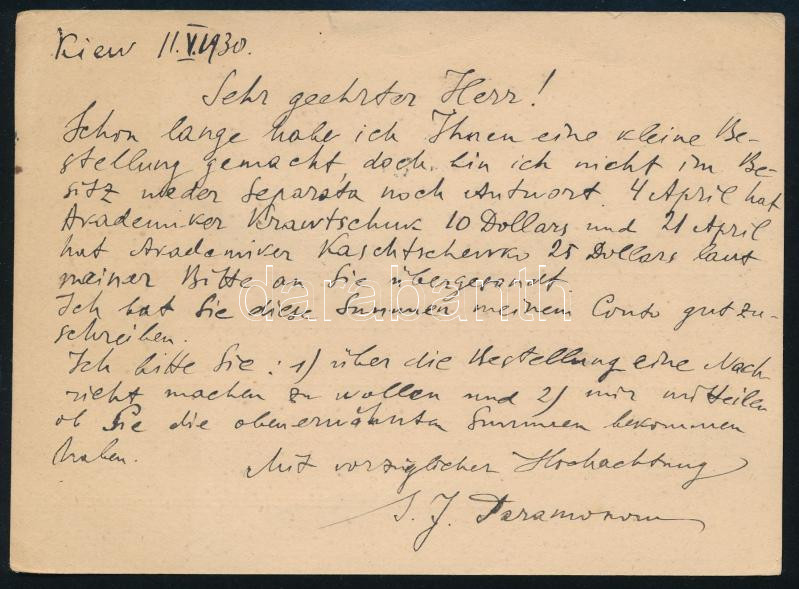 Kiew 11.V.1930.
Sehr geehrter Herr!
Schon lange habe ich Ihnen eine kleine Be-
stellung gemacht doch bin ich nicht im Be-
sitz weder Separata noch Antwort. 4 April hat
Akademiker Krawtschuk 10 Dollars und 21 April
hat Akademiker Kaschtschenko 25 Dollars laut
meiner Bitte an Sie übergesandt.
Ich bat Sie diese Summen meinem Conto gutzu-
schreiben.
Ich bitte Sie: 1) über die Bestellung eine Nach-
richt machen zu wollen und 2) mir mitteilen
ob Sie die obenerwähnten Summen bekommen
haben.
Mit vorzüglicher Hochachtung
S. J. Paramonow
darabanth